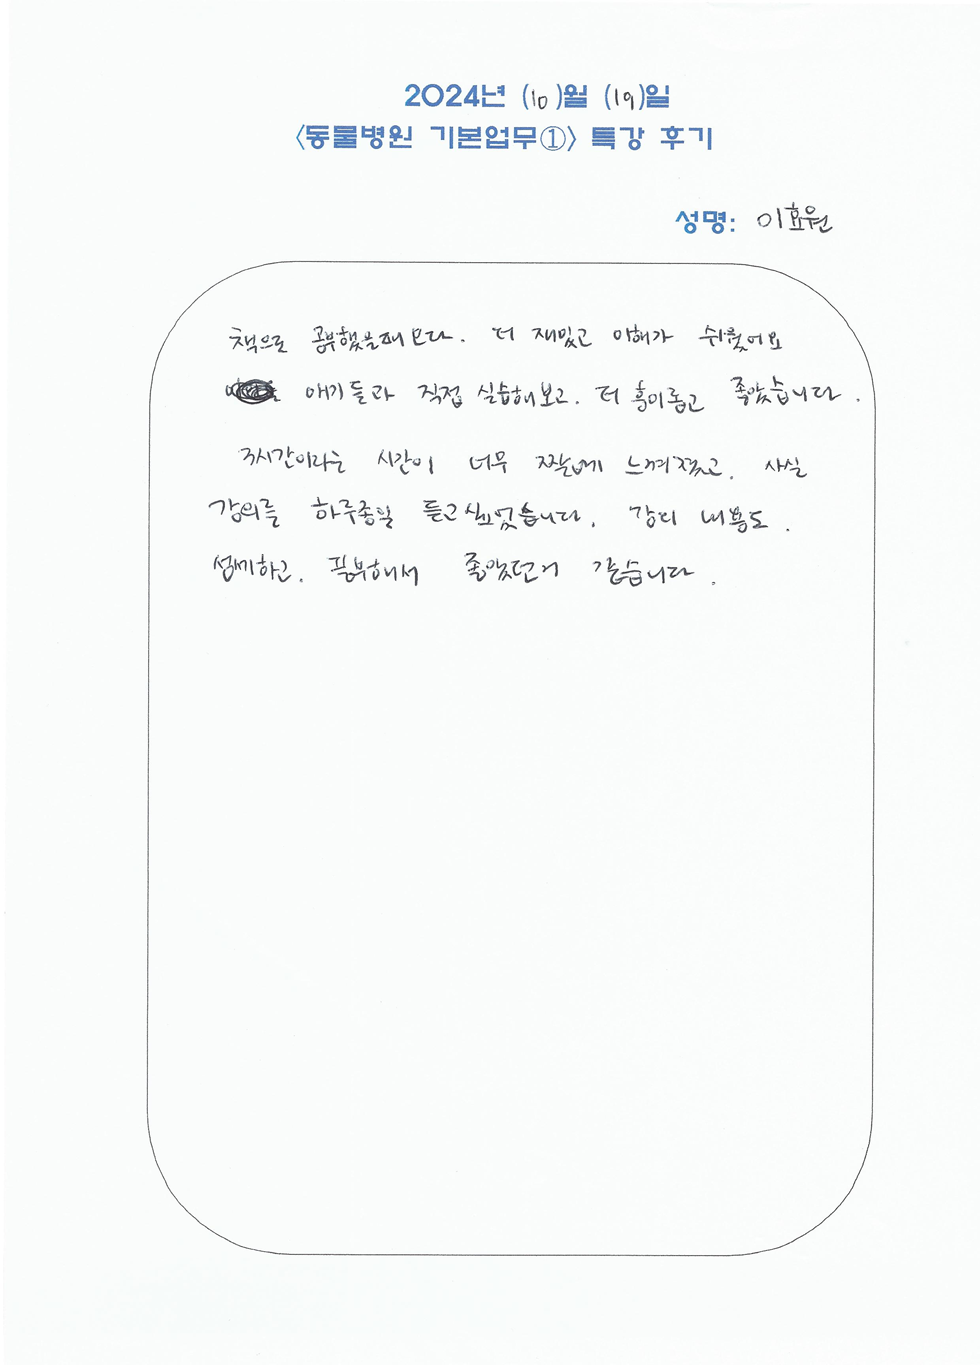 2024년 (10)월 (19)일
〈동물병원 기본업무①〉 특강 후기
성명: 이효원
책으로 공부했을때 보다. 더 재밌고 이해가 쉬웠어요
애기들과 직접 실습해보고. 더 흥미롭고 좋았습니다.
3시간이라는 시간이 너무 짧게 느껴졌고. 사실
강의를 하루종일 듣고싶었습니다. 강의 내용도.
섬세하고. 풍부해서 좋았던거 같습니다.